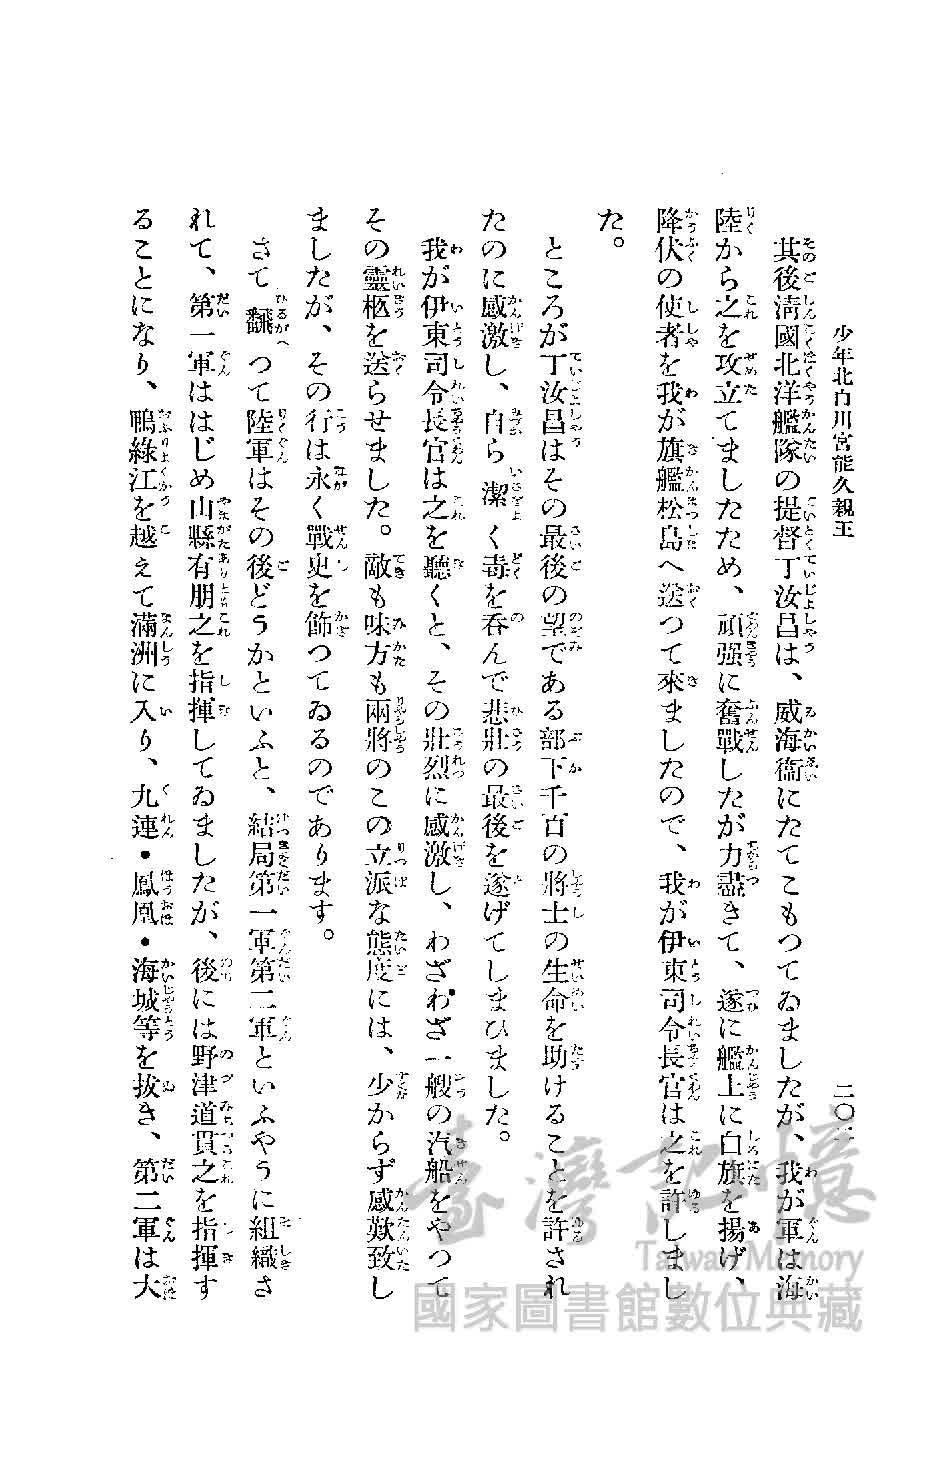 少年北白川宮能久親王
其後淸國北洋艦隊の提督丁汝昌は、威海衞にたてこもつてゐましたが、我が軍は海
陸から之を攻立てましたため、頑强に奮戰したが力盡きて、遂に艦上に白旗を揚げ、
降伏の使者を我が旗艦松島へ送つて來ましたので、我が伊東司令長官は之を許しまし
た。
ところが丁汝昌はその最後の望である部下千百の將士の生命を助けることを許され
たのに感激し、自ら潔く毒を呑んで悲壯の最後を遂げてしまひました。
我が伊東司令長官は之を聽くと、その壯烈に感激し、わざわざ一艘の汽船をやつて
その靈柩を送らせました。敵も味方も兩將のこの立派な態度には、少からず感歎致し
ましたが、その行は永く戰史を飾つてゐるのであります。
さて飜つて陸軍はその後どうかといふと、結局第一軍第二軍といふやうに組織さ
れて、第一軍ははじめ山縣有朋之を指揮してゐましたが、後には野津道貫之を指揮す
ることになり、鴨綠江を越えて滿洲に入り、九連・鳳凰・海城等を拔き、第二軍は大
臺灣記憶
Taiwan Memory
國家圖書館數位典藏